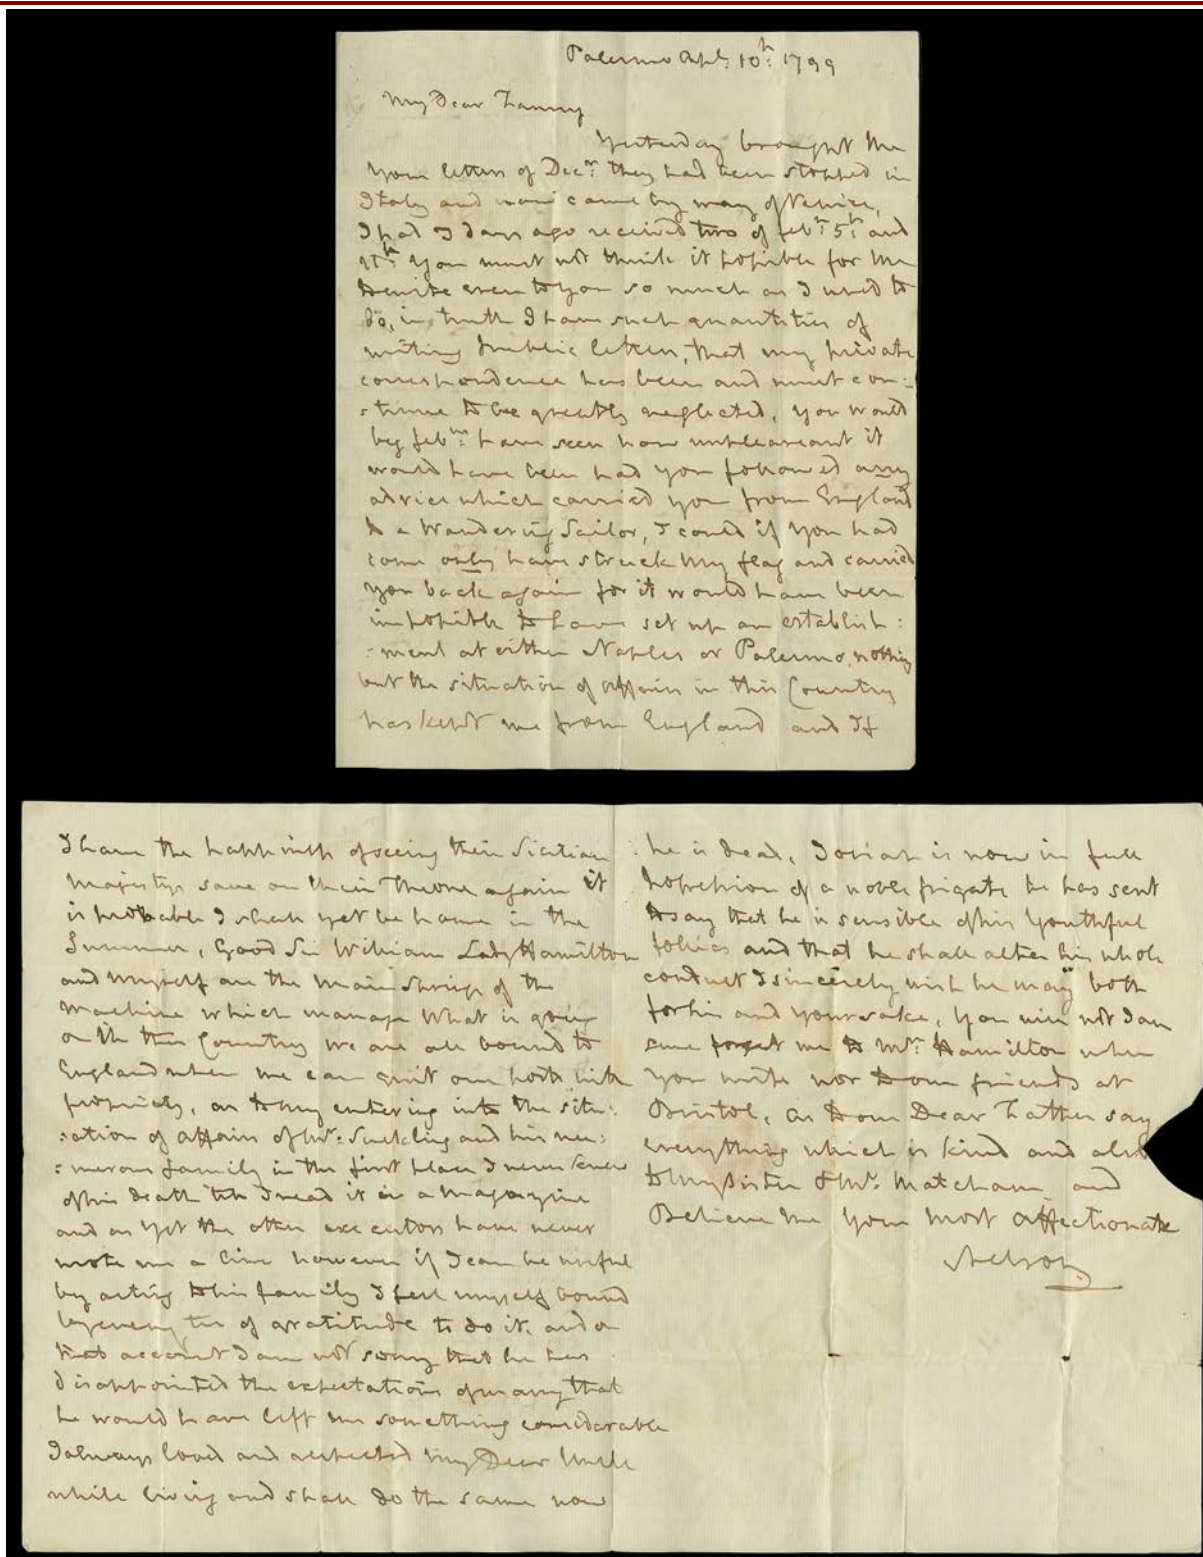 Palermo Apl: 10h: 1799
My Dear Fanny
Yesterday brought me
your letters of Decr: they had been stopped in
Italy and now came by way of Venice,
I had 3 days ago received two of febr: 5h: and
you must not think it possible for me
to write even to you so much as I used to
do, in truth I have such quantities of
writing public letters, that my private
correspondence has been and must con:
:tinue to be greatly neglected, you would
by febry: have seen how unpleasant it
would have been had you followed any
advice which carried you from England
to a Wandering Sailor, I could if you had
come only have struck my flag and carried
you back again for it would have been
impossible to have set up an establish:
:ment at either Naples or Palermo, nothing
but the situation of affairs in this Country
has kept me from England and If
I have the happiness of seeing their Sicilian
Majestys safe on their Throne again it
is probable I shall yet be home in the
Summer, Good Sir William Lady Hamilton
and myself are the main Springs of the
Machine which manage What is going
on in this Country we are all bound to
England when we can quit our posts with
propriety, as to my entering into the situ:
:ation of affairs of Mr: Suckling and his nu:
:merous family in the first place I never knew
of his death till I read it in a magazine
and as yet the other executors have never
wrote me a line however if I can be useful
by acting to his family I feel myself bound
by every tie of gratitude to do it, and on
that account I am not sorry that he has
disappointed the expectations of many that
he would have left me something considerable
I always loved and respected my Dear Uncle
while living and shall do the same now
he is dead, Josiah is now in full
possession of a noble frigate he has sent
to say that he is sensible of his Youthful
follies and that he shall alter his whole
conduct I sincerely wish he may both
for his and your sake, You will not I am
sure forget me to Mrs: Hamilton when
you write nor to our friends at
Bristol, as to our Dear Father say
everything which is kind and also
to my Sister & Mr: Matcham and
Believe Me Your most affectionate
Nelson